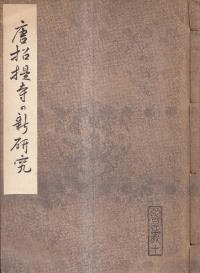 唐招提寺の新研究